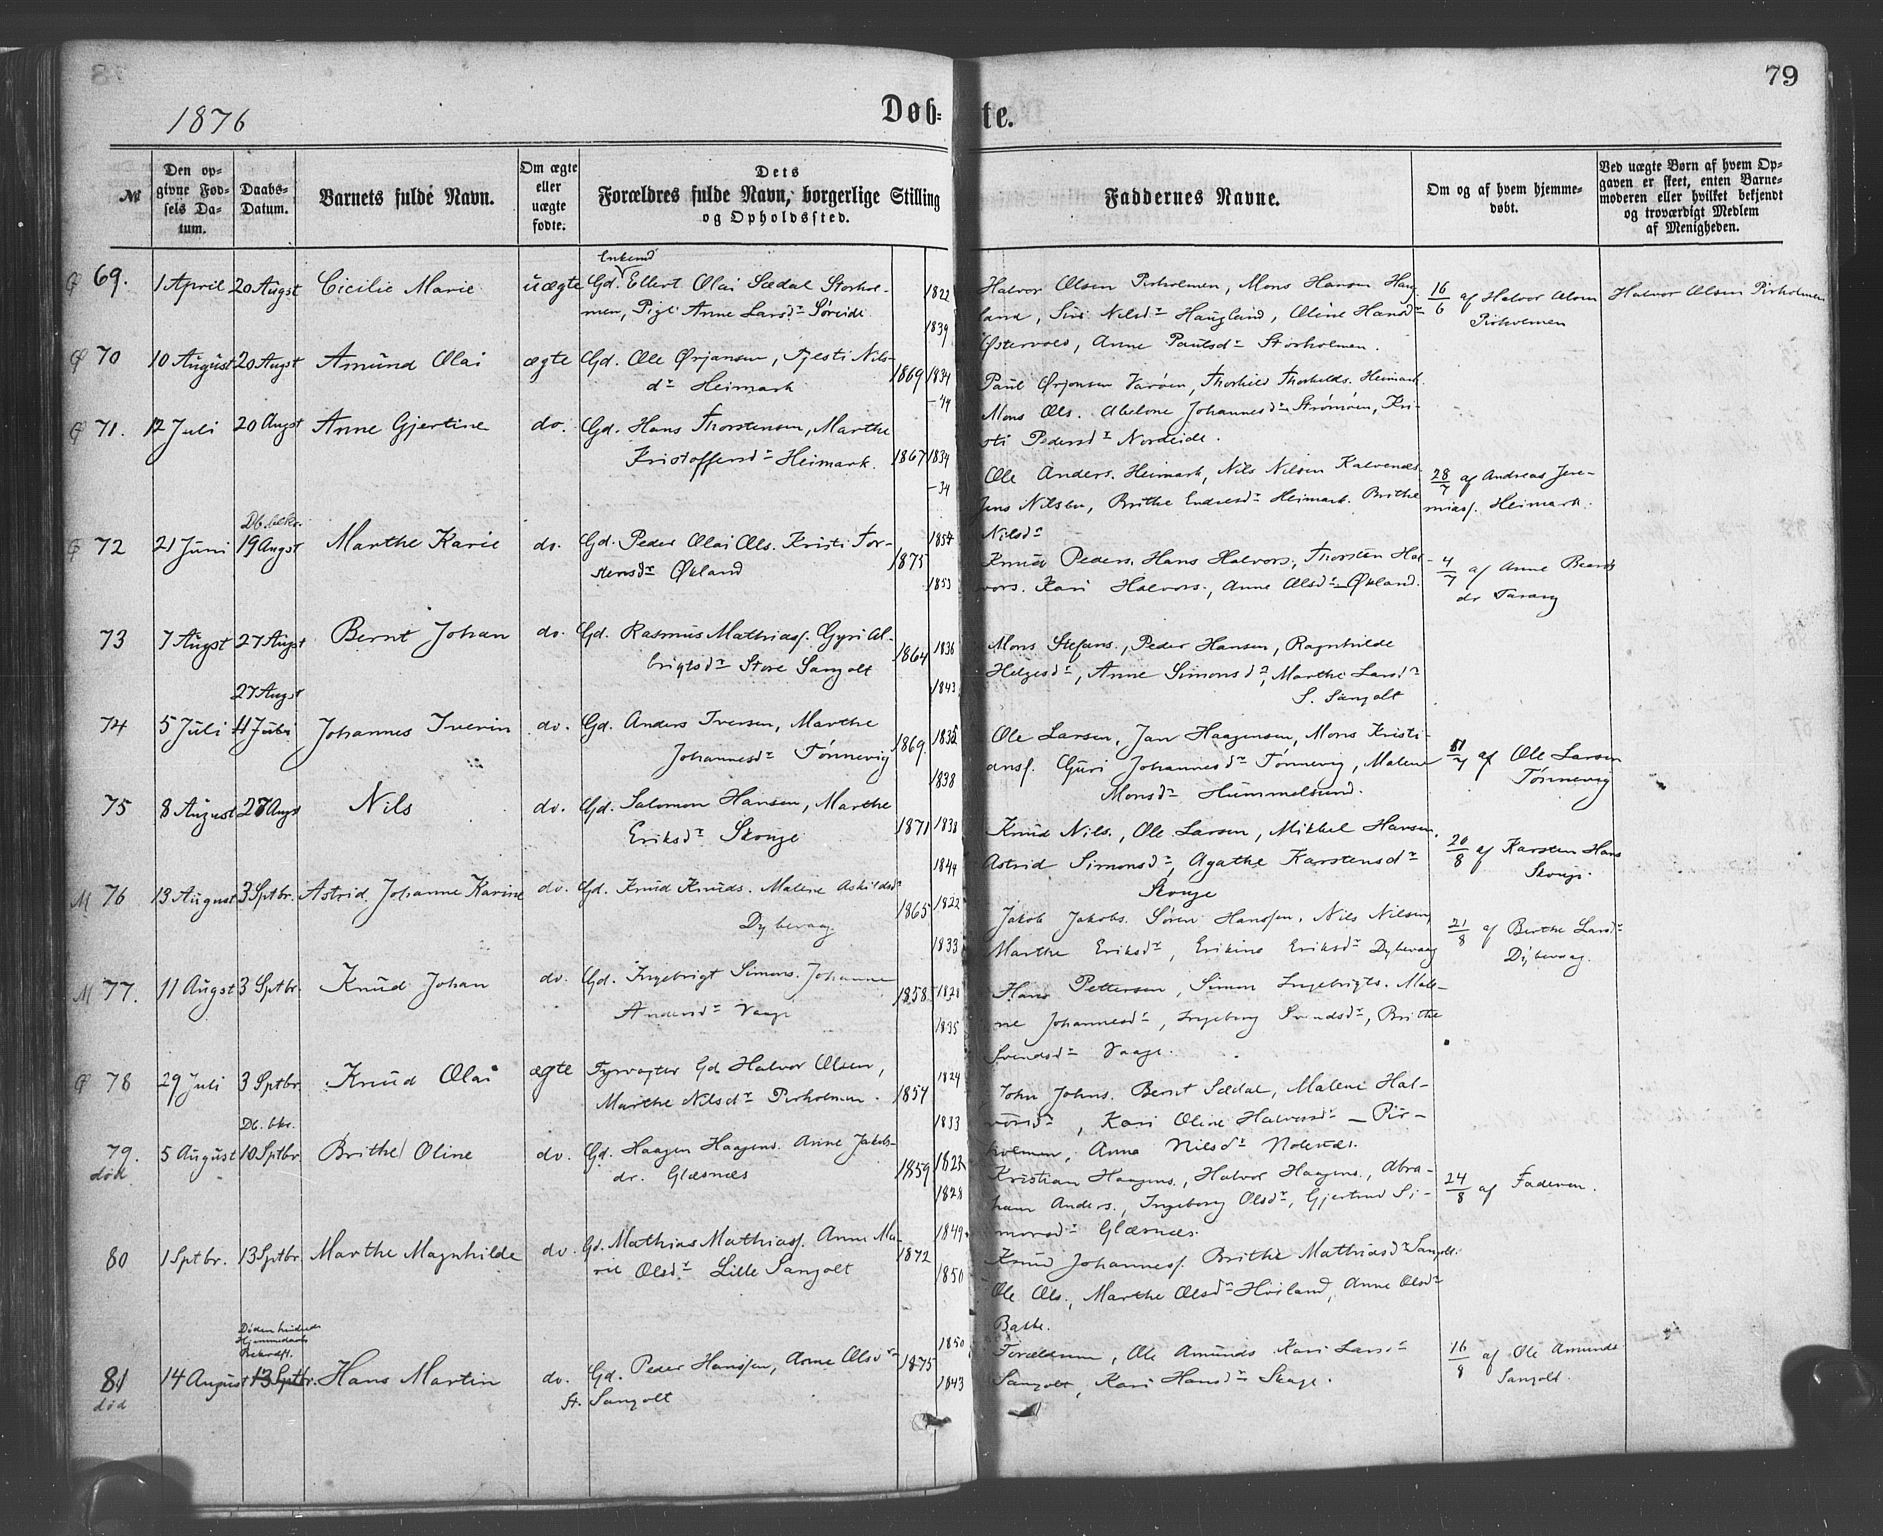 79
1876
Døb-te.
№
Den opgivne Fødsels Datum.
Daabs-Datum.
Barnets fulde Navn.
Om ægte eller uægte fødte.
Dets Forældres fulde Navn, borgerlige Stilling og Opholdssted.
Faddernes Navne.
Om og af hvem hjemmedøbt.
Ved uægte Børn af hvem Opgaven er skeet, enten Barnemoderen eller hvilket bekjendt og troværdigt Medlem af Menigheden.
69. 1 April 20 Augst Cicilie Marie uægte Enkemd Gd. Ellert Olai Sædal Storhol- 1822
men, Pige Anne Larsdr Søreide 1839
Halvor Olsen Pirholmen, Mons Hansen Haug
land, Siri Nilsdr Haugland, Oline Hansdr
Østervold, Anne Paulsdr Storholmen.
16/6 af Halvor Olsen Pirholmen
Halvor Olsen Pirholmen
70 10 August 20 Augst Amund Olai ægte Gd. Ole Ørjansen, Kjesti Nils- 1869 1834
dr Heimark -44
Paul Ørjansen Varøen, Thorkild Thorkilds. Heimark
Mons Ols. Abelone Johannesdr Strømøen, Kri-
sti Pedersdr Nordeide.
71. 12 Juli 20 Augst Anne Gjertine do. Gd. Hans Thorstensen, Marthe
Kristoffersdr Heimark. 1867 1834
-34
Ole Anders. Heimark, Nils Nilsen Kalvenes
Jens Nilsen, Brithe Endresdr Heimark. Brithe
Nilsdr
28/7 af Andreas Jere-
miass. Heimark.
72 21 Juni Db. bekr. 19 Augst Marthe Karie do. Gd. Peder Olai Ols. Kristi Tor- 1875 1854
stensdr Økland 1853
Knud Peders. Hans Halvors., Thorsten Hal-
vors. Kari Halvors., Anne Olsdr Økland.
4/7 af Anne Bernts
dr Tarang
73 7 Augst 27 Augst Bernt Johan do. Gd. Rasmus Mathiass. Gyri Al- 1864 1836
brigtsdr Store Sangolt 1843
Mons Stefans., Peder Hansen, Ragnhilde
Helgesdr, Anne Simonsdr, Marthe Larsdr
S. Sangolt
27 Augst
74 5 Juli 11 Juli Johannes Iverin do. Gd. Anders Iversen, Marthe 1869. 1835
Johannesdr Tønnevig 1838
Ole Larsen, Jan Haagensen, Mons Kristi-
anss. Guri Johannesdr Tønnevig, Malene
Monsdr Hummelsund.
af Ole Larsen
Tønnevig
75 8 August 27 Augst Nils do. Gd. Salomon Hansen, Marthe 1871 1838
Eriksdr Skouge 1844
Knud Nils., Ole Larsen, Mikkel Hansen,
Astrid Simonsdr, Agathe Karstensdr
Skouge
20/8 af Karsten Hans
Skouge.
76 13 August 3 Sptbr. Astrid Johanne Karine do. Gd. Knud Knuds. Malene Askildsdr 1865 1822
Dybevaag 1833
Jakob Jakobs. Søren Hanssen. Nils Nilsen,
Marthe Eriksdr, Erikine Eriksdr Dybevaag
21/8 af Berthe Larsdr
Dybevaag.
77. 11 Augst 3 Sptbr. Knud Johan do. Gd. Ingebrigt Simons. Johanne 1858. 1828
Andersdr Vaage 1835
Hans Pettersen, Simon Ingebrigts. Male-
ne Johannesdr, Ingeborg Svendsdr, Brithe
Svendsdr Vaage.
78 29 Juli 3 Sptbr. Knud Olai ægte Fyrvogter Gd Halvor Olsen, 1824
Marthe Nilsdr Pirholmen. 1854 1833
John Johns. Bernt Sædal, Malene Hal-
vorsdr, Kari Oline Halvorsdr — Pir-
holmen, Anna Nilsdr
79. død 5 August Db. bkr. 10 Sptbr. Brithe Oline do. Gd. Haagen Haagens. Anne Jakobs- 1859
dr. Glæsnæs 1828
Kristian Haagens., Halvor Haagens., Abra-
ham Anders., Ingeborg Olsdr, Gjertrud Si-
monsdr Glæsnæs.
24/8 af Faderen.
80 1 Sptbr. 13 Sptbr. Marthe Magnhilde do. Gd. Mathias Mathiass. Anne Ma- 1872 1849
rie Olsdr Lille Sangolt 1850
Knud Johanness. Brithe Mathiasdr Sangolt.
Ole Ols., Marthe Olsdr Høiland, Anne Olsdr
Bakke.
81 død 14 August Døden hindrede Hjemmedaabs Bekræft. 13 Sptbr. Hans Martin do. Gd. Peder Hanssen, Anne Olsdr 1875 1850
St. Sangolt 1843
Forældrene, Ole Amunds Kari Larsdr
Sangolt, Kari Hansdr Skage.
16/8 af Ole Amunds
Sangolt.